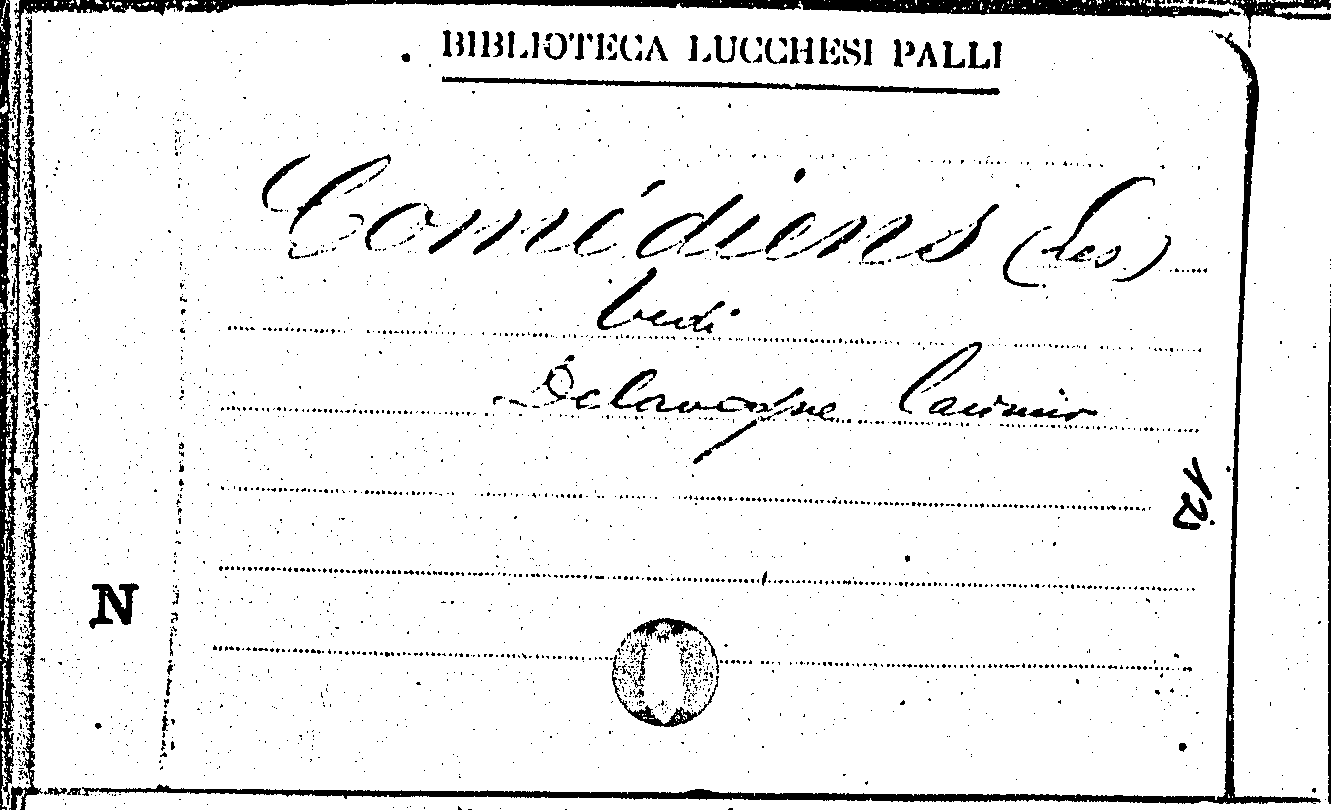 BIBLIOTECA LUCCHESI PALLI
Comédiens (Les)
Vedi
Delavigne Casimir
12
N